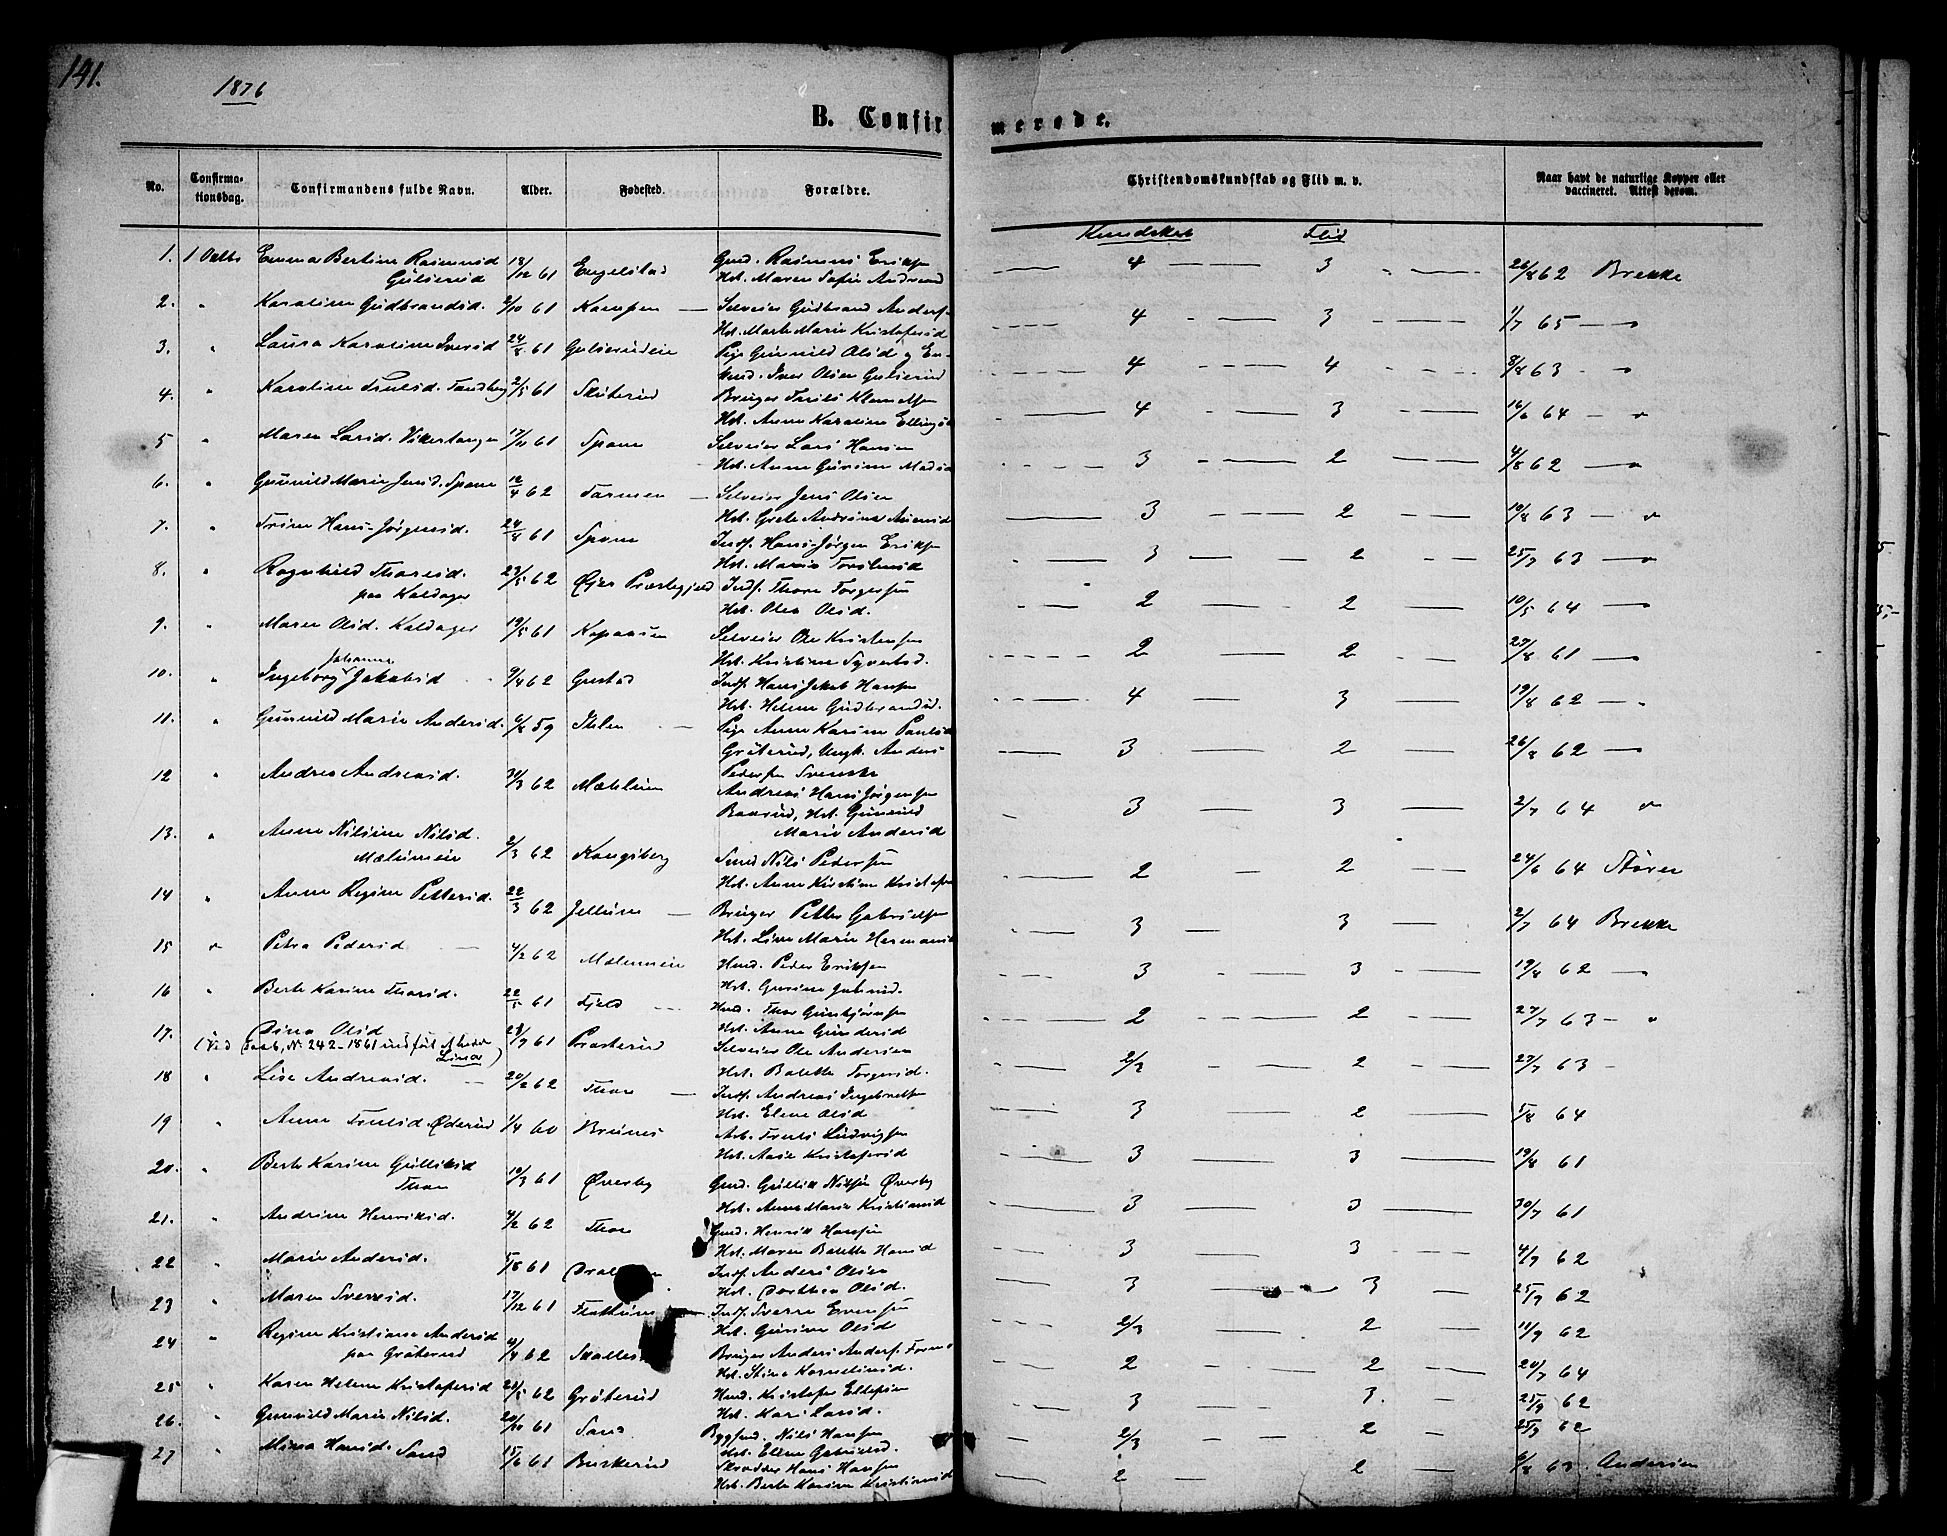 141.
1876
B. Confirmerede.
No. Confirmationsdag. Confirmandens fulde Navn. Alder. Fødested. Forældre. Christendomskundskab og Flid m. v. Naar havt de naturlige Kopper eller vaccineret. Attest derom.
Kundskab Flid
1. 1 Octb Emma Bertine Rasmusd 18/12 61 Engelstad Gmd. Rasmus Eriksen 4 3 26/8 62 Brekke
Gulserud Hst. Maren Sofie Andersd
2. " Karoline Gudbrandsd. 2/10 61 Kampen Selveier Gudbrand Anders 4 3 1/7 65 — "
Hst. Marte Marie Kristofersd
3. " Laura Karoline Iversd 24/8 61 Gulserudeie Pige Gunnild Olsd og En- 4 4 8/8 63 - "
kmd. Iver Olsen Gulserud
4. " Karoline Trulsd. Sandberg 2/5 61 Skuterud Bruger Truls Klemetsen 4 3 16/6 64 — "
Hst. Anne Karoline Ellingsd
5 " Maren Larsd. Vikertangen 17/11 61 Spone Selveier Lars Hansen 3 2 4/8 62 — "
Hst. Anne Gurine Madsd
6. " Gunnild Marie Jensd. Spone 12/4 62 Selveier Jens Olsen 3 2 19/8 63 — "
Hst. Grete Andrine
7. " Trine Hans-Jørgensd. 24/8 61 Spone Indf. Hans-Jørgen Eriksen 3 2 25/7 63 — "
Hst. Maria
8. " Ragnhild Thoresd. 23/5 62 Øjer Præstegjeld Indf. Thore Torgersen 2 2 10/5 64 — "
paa Kaldager Hst. Olea Olsd.
9. " Maren Olsd. Kaldager 19/5 61 Selveier Ole Kristensen 2 2 27/8 61 — "
Hst. Kristine Syvertsd.
Johanne
10. " Ingeborg Jakobsd 9/4 62 Gustad Indf. Hans Jakob Hansen 4 3 19/8 62 — "
Hst. Helene Gudbrandsd.
11. " Gunnild Marie Andersd. 6/8 59 Pige Anne Karine Paulsd 3 2 26/8 62 — "
Grøterud, Ungk. Anders
12 " Andrea Andreasd. 31/3 62 Mælum Pedersen Svenske 3 3 2/7 64 "
Andreas Hans Jørgensen
Baasrud, Hst. Gunnild
13. " Anne Nilsine Nilsd. 2/3 62 Kongsberg Marie Andersd 2 2 24/6 64 Støren
Mælumeie Smed Nils Pedersen
Hst. Anne Kirstine
14 " Anne Regine Pettersd. 22/3 62 Jellum Bruger Petter Gabrielsen 3 3 2/7 64 Brekke
Hst. Live Marie Hermansd
15 " Petra Pedersd 4/2 62 Mælumeie Hmd. Peder Eriksen 3 3 19/8 62 — "
Hst. Gurine Jakobsd.
16 " Berte Karine Thorsd. 22/5 61 Fjeld Hmd. Thor Gunbjørnsen 2 2 27/7 63 — "
Hst. Anne Gundersd
17. Dina Olsd 28/9 61 Prosterud Selveier Ole Andersen 2/3 2 27/7 63 -
(Ved Daab, No. 242-1861 indført Lina) Hst. Bolette Torgersd.
18 " Lise Andreasd. 20/2 62 Thon Indf. Andreas Ingebretsen 3 2 5/8 64
Hst. Elene Olsd
19 " Anne Trulsd Øderud 1/4 60 Brunes Arb. Truls Ludvigsen 3 3 19/8 61
Hst. Aase Kristofersd
20. " Berte Karine Gulliksd 19/3 61 Øverby Gmd. Gullik Nilsen Øverby 3 3 30/7 61
Thon Hst. Anne Marie Kristiansd
21. " Andrine Henriksd. 4/2 62 Thon Gmd. Henrik Hansen 3 3 4/9 62
Hst. Maren Bolette Hansd
22 " Marie Andersd. 5/8 61 Indf. Anders Olsen 3 3 25/9 62
Hst. Dorthea Olsd.
23 " Maren Sverresd. 17/12 61 Indf. Sverre Evensen 2/3 2 11/9 62
Hst. Gurine Olsd
24 " Regine Kristiane Andersd 4/4 62 Bruger Anders Anders. 2 2 20/7 64
paa Grøterud Hst. Stine Kornelinsd.
25 " Karen Helene Kristofersd 23/5 62 Grøterud Hmd. Kristofer Ellefsen 3 3. 25/9 62
Hst. Kari Larsd.
26. " Gunnild Marie Nilsd. 20/10 61 Sand Bygselmd. Nils Hansen 2/3 2 25/9 62
Hst. Elene Gabrielsd.
27 " Mina Hansd. Sand 15/6 61 Buskerud Skrædder Hans Hansen 2 2 6/8 63 Andersen
Hst. Berte Karine Kristiansd